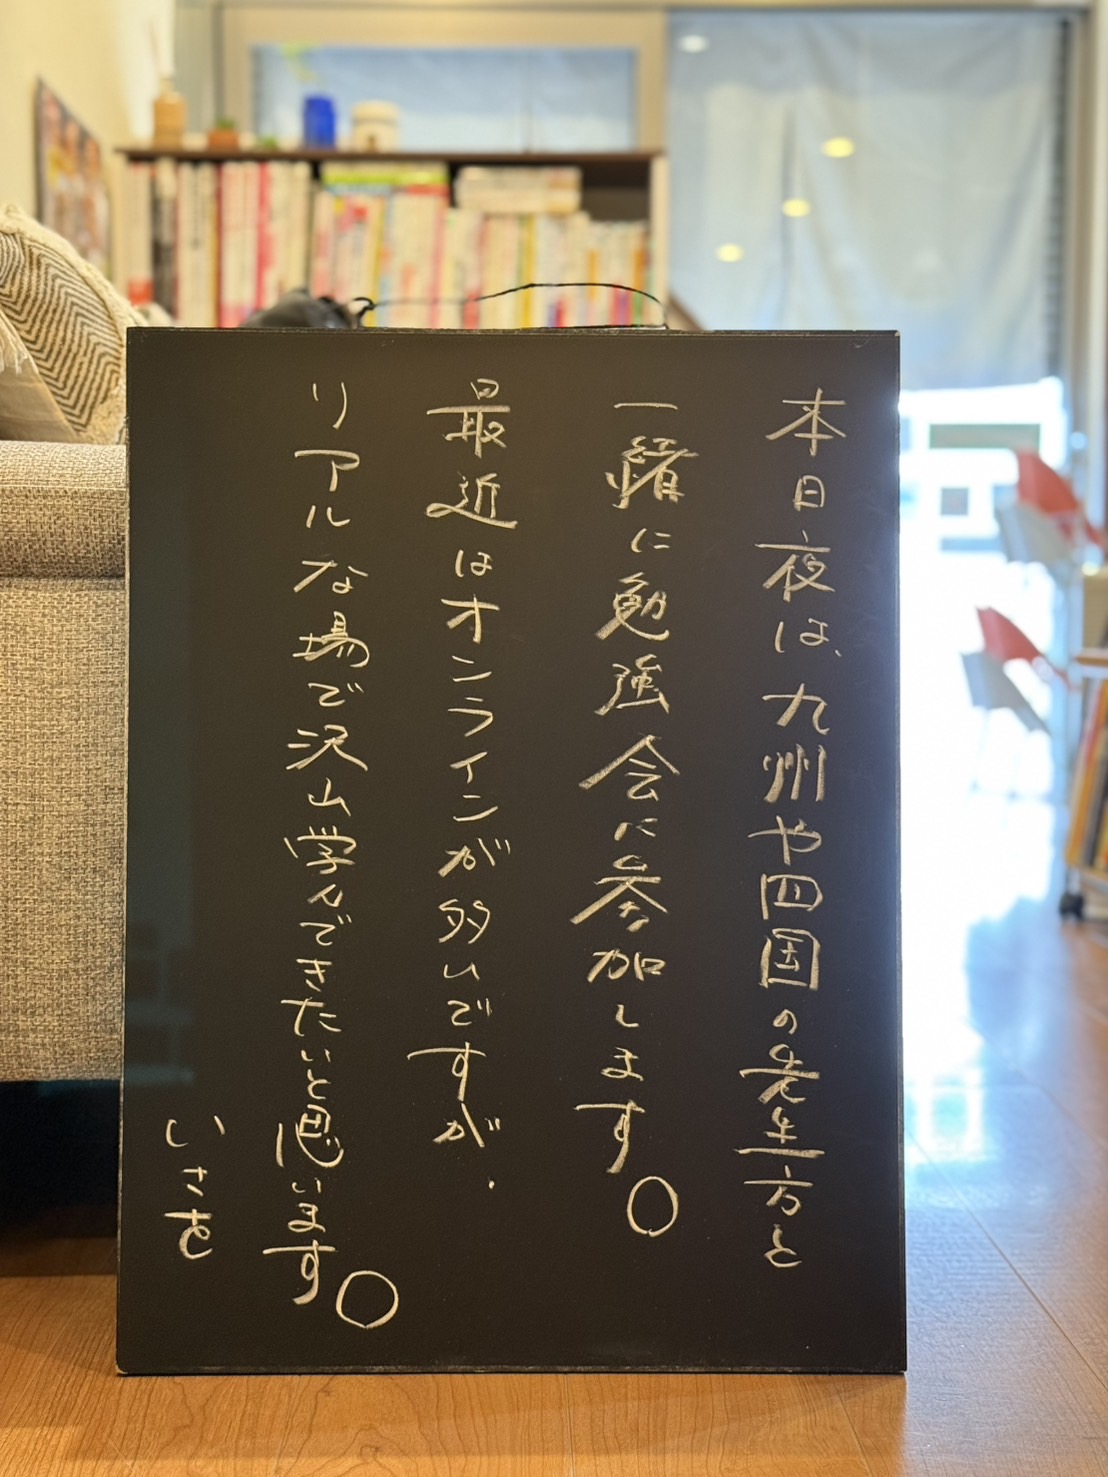 本日夜は、九州や四国の先生方と
一緒に勉強会に参加します。
最近はオンラインが多いですが、
リアルな場で沢山学んできたいと思います。
いさを